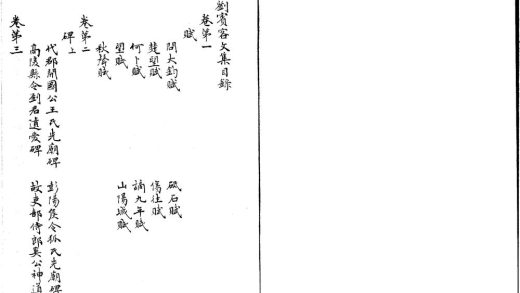 劉賓客文集目錄
卷第一
賦
問大鈞賦 砥石賦
楚望賦 傷往賦
何卜賦 謫九年賦
望賦 山陽城賦
秋聲賦
卷第二
碑上
代郡開國公王氏先廟碑 彭陽侯令狐氏先廟碑
高陵縣令劉君遺愛碑 故吏部侍郎奚公神道
卷第三